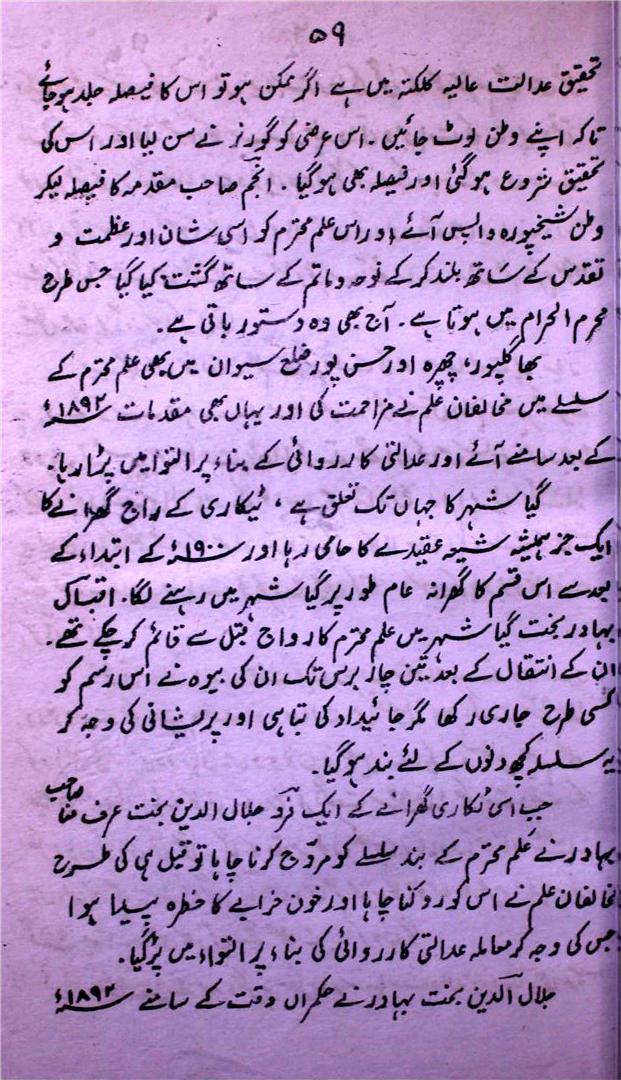 ۵۹
تحقیق عدالت عالیہ کلکتہ میں ہے اگر ممکن ہو تو اس کا فیصلہ جلد ہو جائے
تاکہ اپنے وطن لوٹ جائیں ۔ اس عرضی کو گورنر نے سن لیا اور اس کی
تحقیق شروع ہو گئی اور فیصلہ بھی ہو گیا ۔ انجم صاحب مقدمہ کا فیصلہ لیکر
وطن شیخپورہ واپس آئے اور اس علم محترم کو اسی شان اور عظمت و
تقدس کے ساتھ بلند کر کے نوحہ و ماتم کے ساتھ گشت کیا گیا جس طرح
محرم الحرام میں ہوتا ہے ۔ آج بھی وہ دستور باقی ہے ۔
بھاگلپور، چھپرہ اور حسن پور ضلع سیوان میں بھی علم محترم کے
سلسلے میں مخالفان علم نے مزاحمت کی اور یہاں بھی مقدمات ۱۸۹۲ء
کے بعد سامنے آئے اور عدالتی کارروائی کے بناء پر التوا میں پڑا رہا ۔
گیا شہر کا جہاں تک تعلق ہے ، ٹیکاری کے راج گھرانے کا
ایک جز ہمیشہ شیعہ عقیدے کا حامی رہا اور ۱۹۰۰ء کے ابتداء کے
بعد سے اس قسم کا گھرانہ عام طور پر گیا شہر میں رہنے لگا ۔ اقتباک
بہادر بخت گیا شہر میں علم محترم کا رواج قبل سے قائم کر چکے تھے ۔
ان کے انتقال کے بعد تین چار برس تک ان کی بیوہ نے اس رسم کو
کسی طرح جاری رکھا مگر جائیداد کی تباہی اور پریشانی کی وجہ کر
یہ سلسلہ کچھ دنوں کے لئے بند ہو گیا ۔
جب اسی ٹکاری گھرانے کے ایک فرد جلال الدین بخت عرف منا صاحب
بہادر نے علم محترم کے بند سلسلے کو مروّج کرنا چاہا تو قبل ہی کی طرح
مخالفان علم نے اس کو روکنا چاہا اور خون خرابے کا خطرہ پیدا ہوا
جس کی وجہ کر معاملہ عدالتی کارروائی کی بناء پر التواء میں پڑ گیا ۔
جلال الدین بخت بہادر نے حکمراں وقت کے سامنے ۱۸۹۲ء